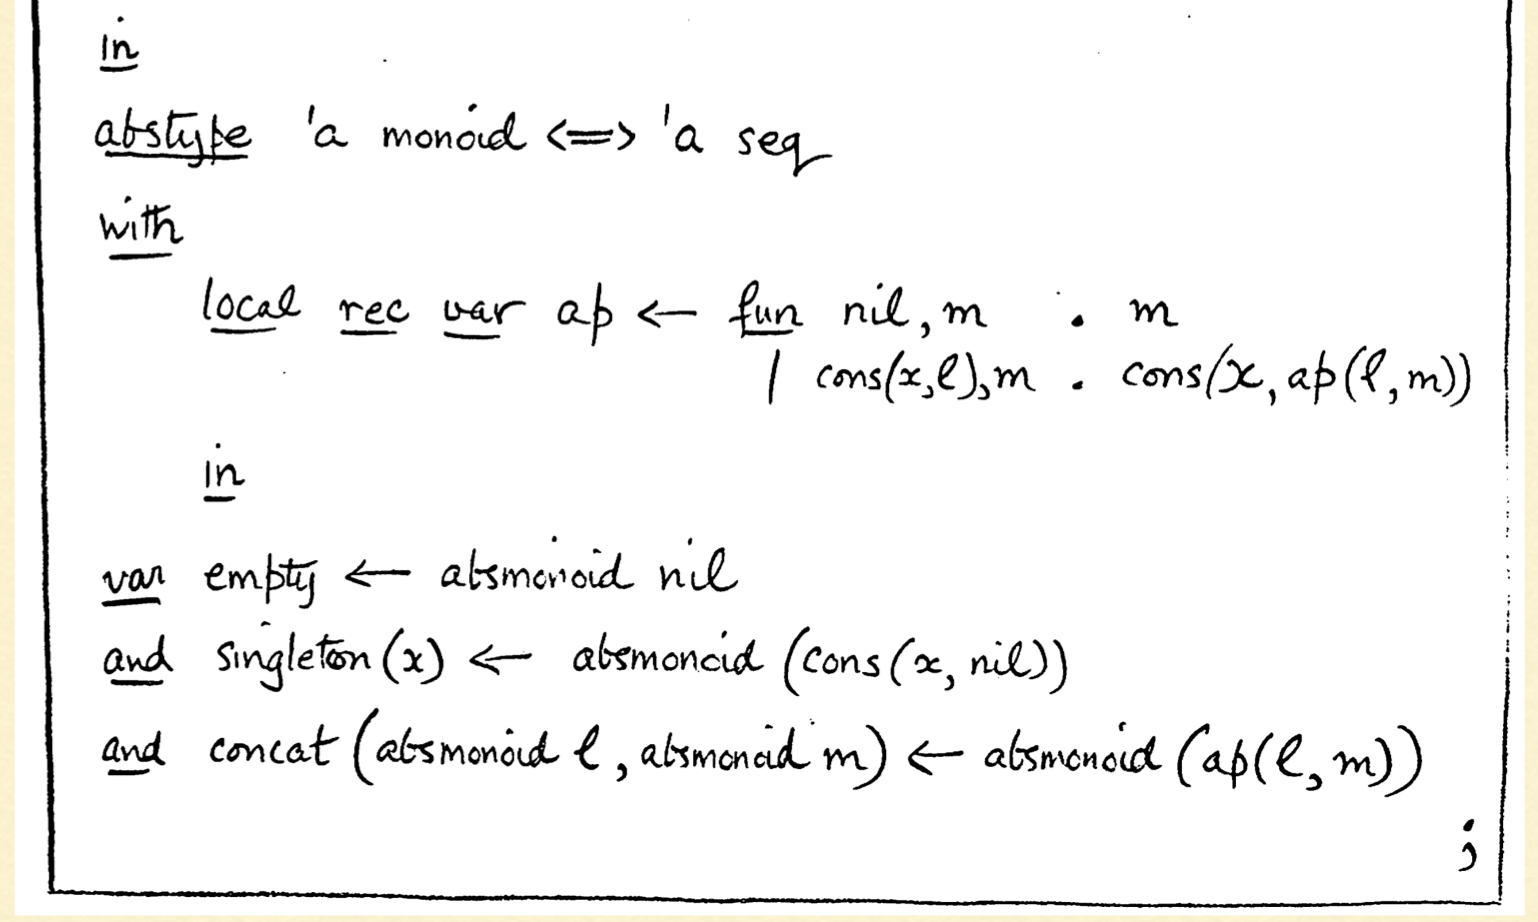 in
abstype 'a monoid <=> 'a seq
with
local rec var ap ← fun nil, m . m
| cons(x,l), m . cons(x, ap(l, m))
in
var empty ← absmonoid nil
and singleton(x) ← absmonoid (cons(x, nil))
and concat (absmonoid l, absmonoid m) ← absmonoid (ap(l, m))
;